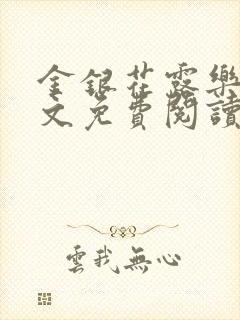 金銀花露樂
文免費閱讀
雲我無心